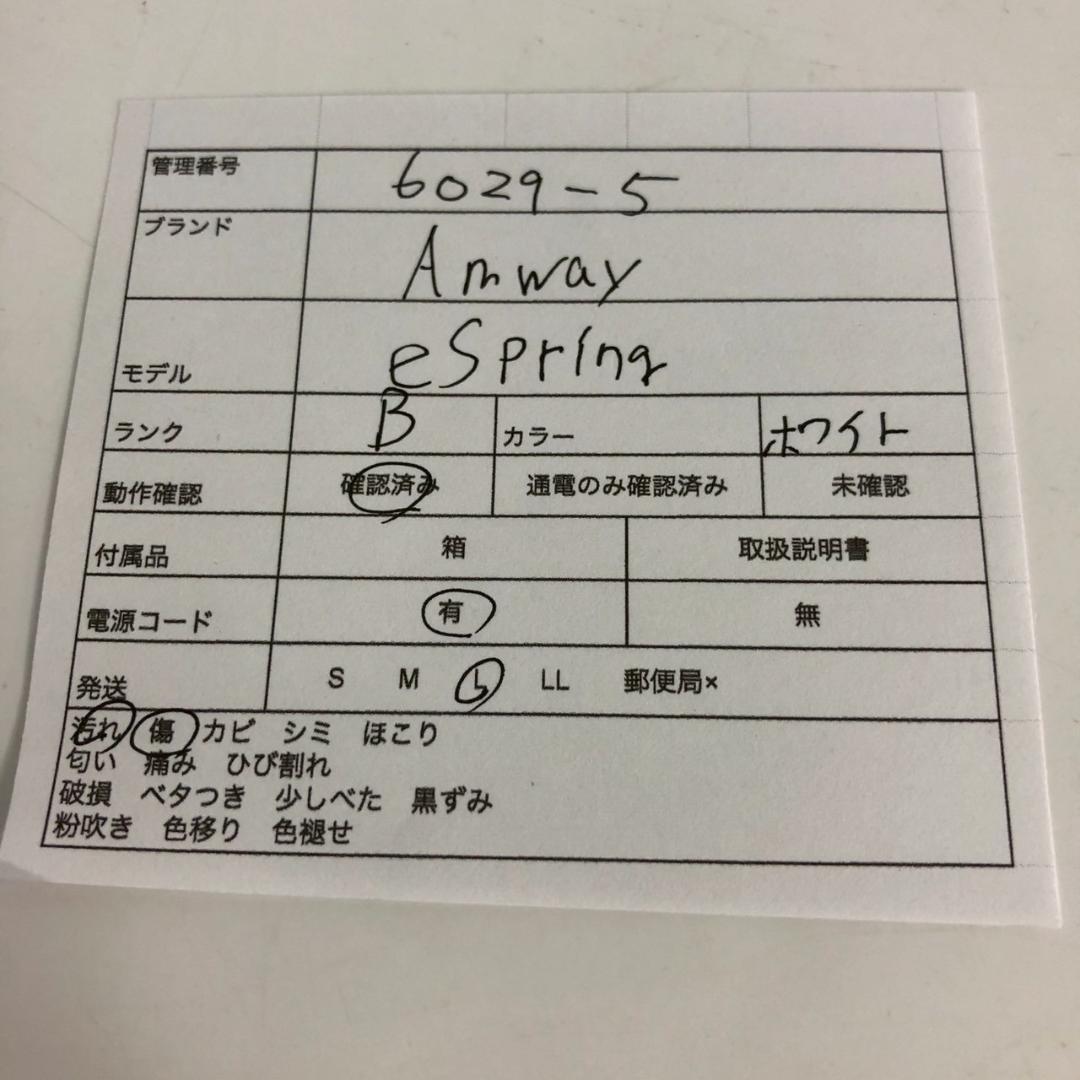 管理番号 6029-5
ブランド Amway
モデル eSpring
ランク B カラー ホワイト
動作確認 確認済み 通電のみ確認済み 未確認
付属品 箱 取扱説明書
電源コード 有 無
発送 S M L LL 郵便局×
汚れ 傷 カビ シミ ほこり
匂い 痛み ひび割れ
破損 ベタつき 少しべた 黒ずみ
粉吹き 色移り 色褪せ